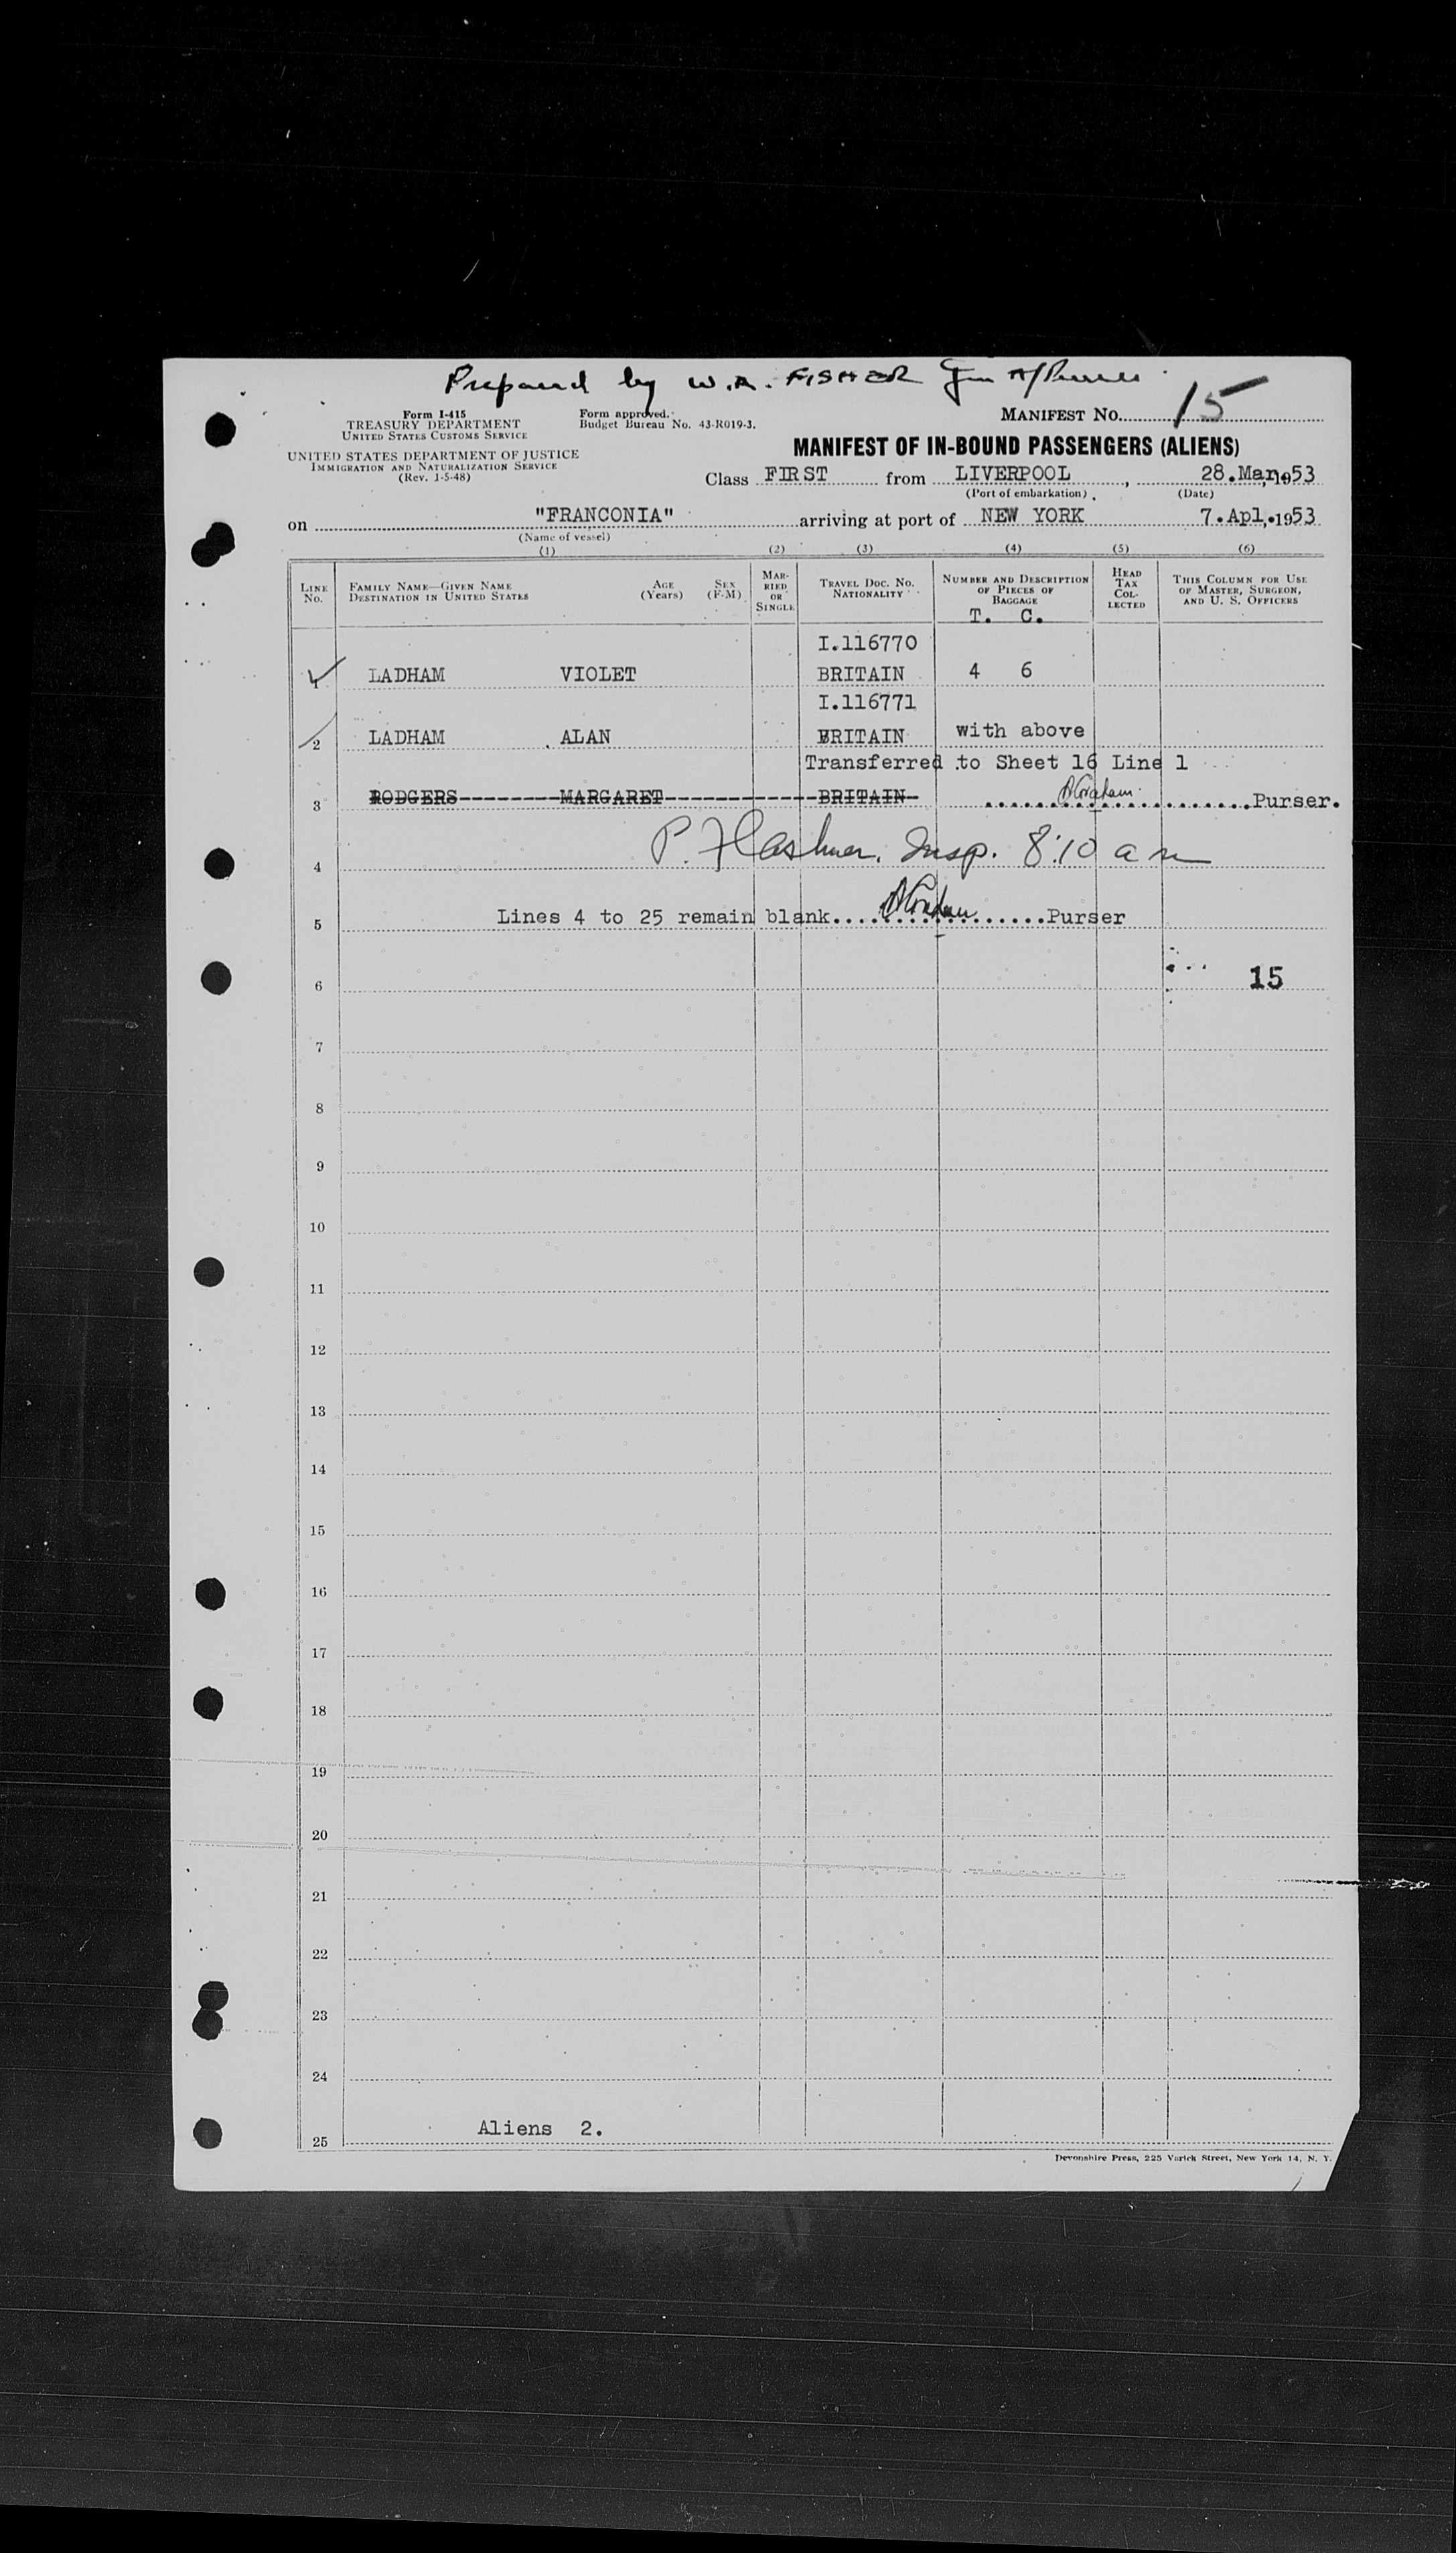 Prepared by W.A. FISHER
Form I-415
TREASURY DEPARTMENT
UNITED STATES CUSTOMS SERVICE
Form approved.
Budget Bureau No. 43-R019-3.
MANIFEST NO. 15
UNITED STATES DEPARTMENT OF JUSTICE
IMMIGRATION AND NATURALIZATION SERVICE
(Rev. 1-5-48)
MANIFEST OF IN-BOUND PASSENGERS (ALIENS)
Class FIRST from LIVERPOOL, 28.Mar,1953
(Port of embarkation) (Date)
on "FRANCONIA" arriving at port of NEW YORK 7.Apl,.1953
(Name of vessel)
(1) (2) (3) (4) (5) (6)
LINE No.
FAMILY NAME—GIVEN NAME
DESTINATION IN UNITED STATES
AGE (Years)
SEX (F-M)
MARRIED OR SINGLE
TRAVEL DOC. NO.
NATIONALITY
NUMBER AND DESCRIPTION OF PIECES OF BAGGAGE
T. C.
HEAD TAX COLLECTED
THIS COLUMN FOR USE OF MASTER, SURGEON, AND U. S. OFFICERS
I.116770
1 LADHAM VIOLET BRITAIN 4 6
I.116771
2 LADHAM ALAN BRITAIN with above
Transferred to Sheet 16 Line 1
3 RODGERS--------MARGARET------------BRITAIN- Purser.
4 Insp. 8:10 am
5 Lines 4 to 25 remain blank Purser
6 15
7
8
9
10
11
12
13
14
15
16
17
18
19
20
21
22
23
24
25 Aliens 2.
Devonshire Press, 225 Varick Street, New York 14, N. Y.